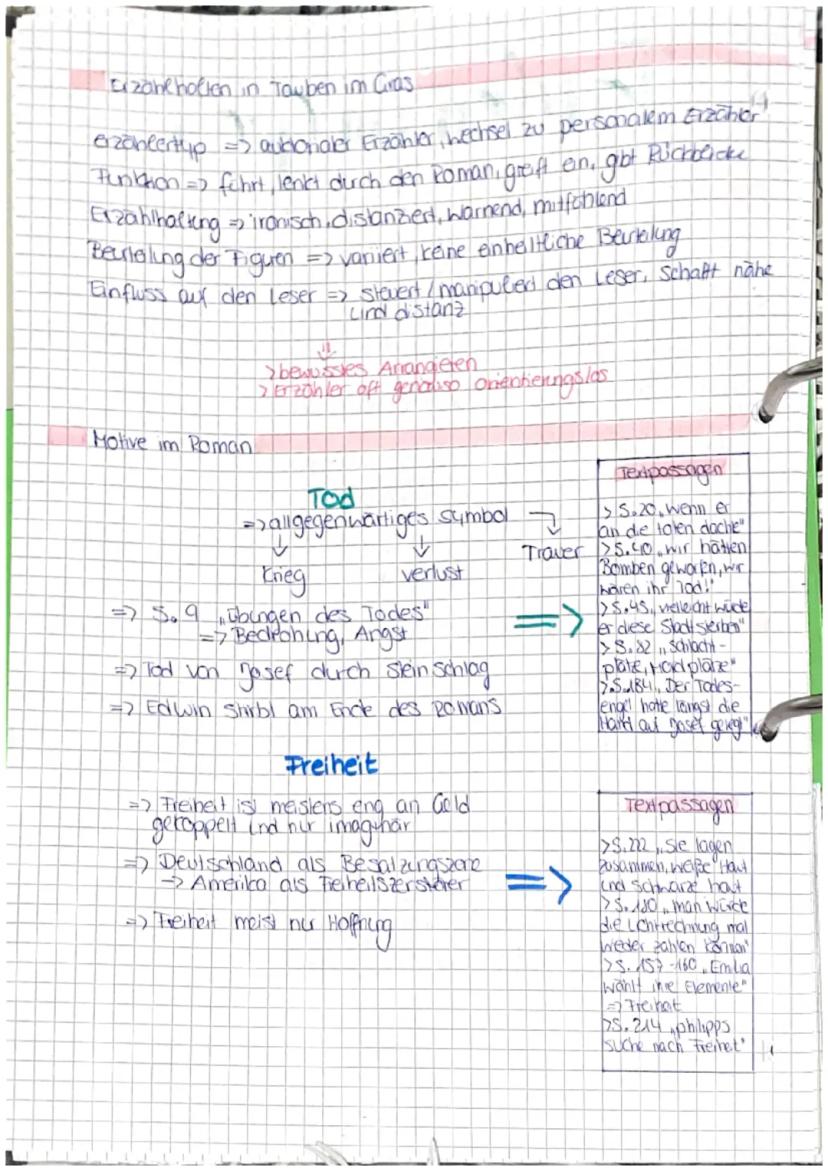 Erzählhalten in Tauben im Gras
erzählertyp => auktorialer Erzähler, wechsel zu personalem Erzähler
Funktion => führt, lenkt durch den Roman, greift ein, gibt Rückblicke
Erzählhaltung => ironisch, distanziert, warnend, mitfühlend
Beurteilung der Figuren => variiert, keine einheitliche Beurteilung
Einfluss auf den Leser => steuert/manipuliert den Leser, schafft nähe
und distanz
>bewusstes Arrangieren
>Erzähler oft genauso orientierungslos
Motive im Roman
Tod
=> allgegenwärtiges symbol
Krieg verlust Trauer
=> S. 9 „Übungen des Todes"
=> Bedrohung, Angst
=> Tod von Josef durch Steinschlag
=> Edwin stirbt am Ende des Romans
Textpassagen
> S.20 „wenn er
an die toten dachte"
> S.40 „wir hätten
Bomben geworfen, wir
wären ihr Tod!"
> S.45 „vielleicht würde
er diese Stadt sterben"
> S.82 „schlacht-
plätze, Mordplätze"
> S.184 „Der Todes-
engel hatte längst die
Hand auf Josef gelegt"
Freiheit
=> Freiheit ist meistens eng an Geld
gekoppelt und nur imaginär
=> Deutschland als Besatzungszone
-> Amerika als Freiheitszerstörer
=> Freiheit meist nur Hoffnung
Textpassagen
>S.222 „Sie lagen
zusammen, weiße Haut
und schwarze haut
> S.180 „man würde
die Lichtrechnung mal
wieder zahlen können"
> S. 157-160 „Emilia
wählt ihre Elemente"
=> Freiheit
>S. 214 „philipps
suche nach Freiheit"